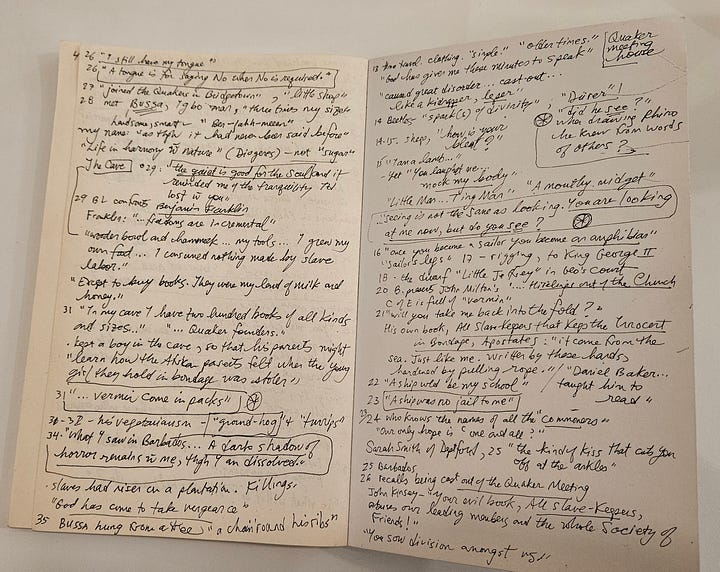 4 26 "I still have my tongue"
26 "A tongue is for saying No when No is required."
27 "joined the Quakers in Deptford", "little sheep"
28 met Bussa, Igbo man, "three times my size"
handsome, smart - "Ben-jahh-meeen"
my name "as tho it had never been said before"
"Life in harmony w nature" (Diogenes) - not "sugar"
The Cave 29: "the quiet is good for the soul and it
reminded me of the tranquility I'd
lost in you"
29 BL confronts Benjamin Franklin
Franklin: "... are incremental"
"wooden bowl and hammock ... my tools ... I grew my
own food ... I consumed nothing made by slave
labor."
"Except to buy books. They were my land of milk and
honey."
31 "In my cave I have two hundred books of all kinds
and sizes.." "... Quaker founders."
. kept a boy in the cave, so that his parents might
"learn how the Afrika parents felt when the young
girl they hold in bondage was stolen"
31 "... vermin come in packs"
30-32 - his vegetarianism - "ground-hog" & "turnips"
34. "What I saw in Barbados... A dark shadow of
horror remains in me, though I am dissolved."
. slaves had risen on a plantation. Killings.
"God has come to take vengeance"
35 Bussa hung from a tree, "a chain round his ribs"
13 time travel. clothing. "simple." "older times."
Quaker
meeting
house
"God has give me these minutes to speak"
"caused great disorder ... cast out...
like a kidnapper, leper"
14 Beetles "spark(s) of divinity", "Dürer"!
"did he see?"
when drawing Rhino
he knew from words
of others?
14-15. sheep, "how is your
bleat?"
15 "I am a lamb..."
- yet "You laughed ...
mock my body"
"Little Man... Tiny Man" "A mouthy midget"
"seeing is not the same as looking. You are looking
at me now, but do you see?
16 "once you become a sailor you become an amphibian"
"sailor's legs" 17 - rigging, to King George II
18. the dwarf "Little Jeffrey" in Geo's court
20 B. presents John Milton's "... Hirelings out of the Church
C of E is full of "vermin"
21 "will you take me back into the fold?"
His own book, All Slave-keepers That Keep the Innocent
in Bondage, Apostates: "it came from the
sea. Just like me. Written by these hands
hardened by pulling rope." / "Daniel Baker...
22 "A ship would be my school" taught him to
read"
23 "A ship was no jail to me"
24 who knows the names of all the "commoners"
"our only hope is 'one and all'?"
Sarah Smith of Deptford, 25 "the kindly kiss that cuts you
off at the ankles"
25 Barbados
26 recalls being cast out of the Quaker Meeting
John Kinsey - "your evil book, All slave-Keepers,
abuses our leading members and the whole Society of
Friends!"
"You sow division amongst us"